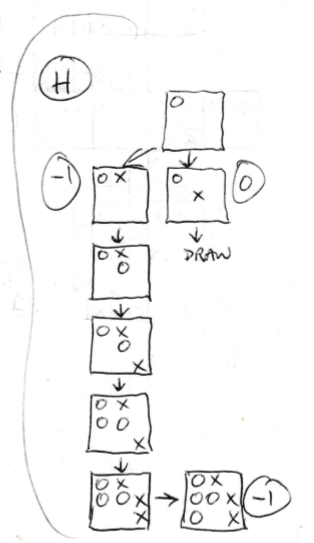 H
O
-1
O X
O
X
0
O X
O
DRAW
O X
O
X
O X
O O
X
O X
O O X
X
O X
O O X
O X
-1